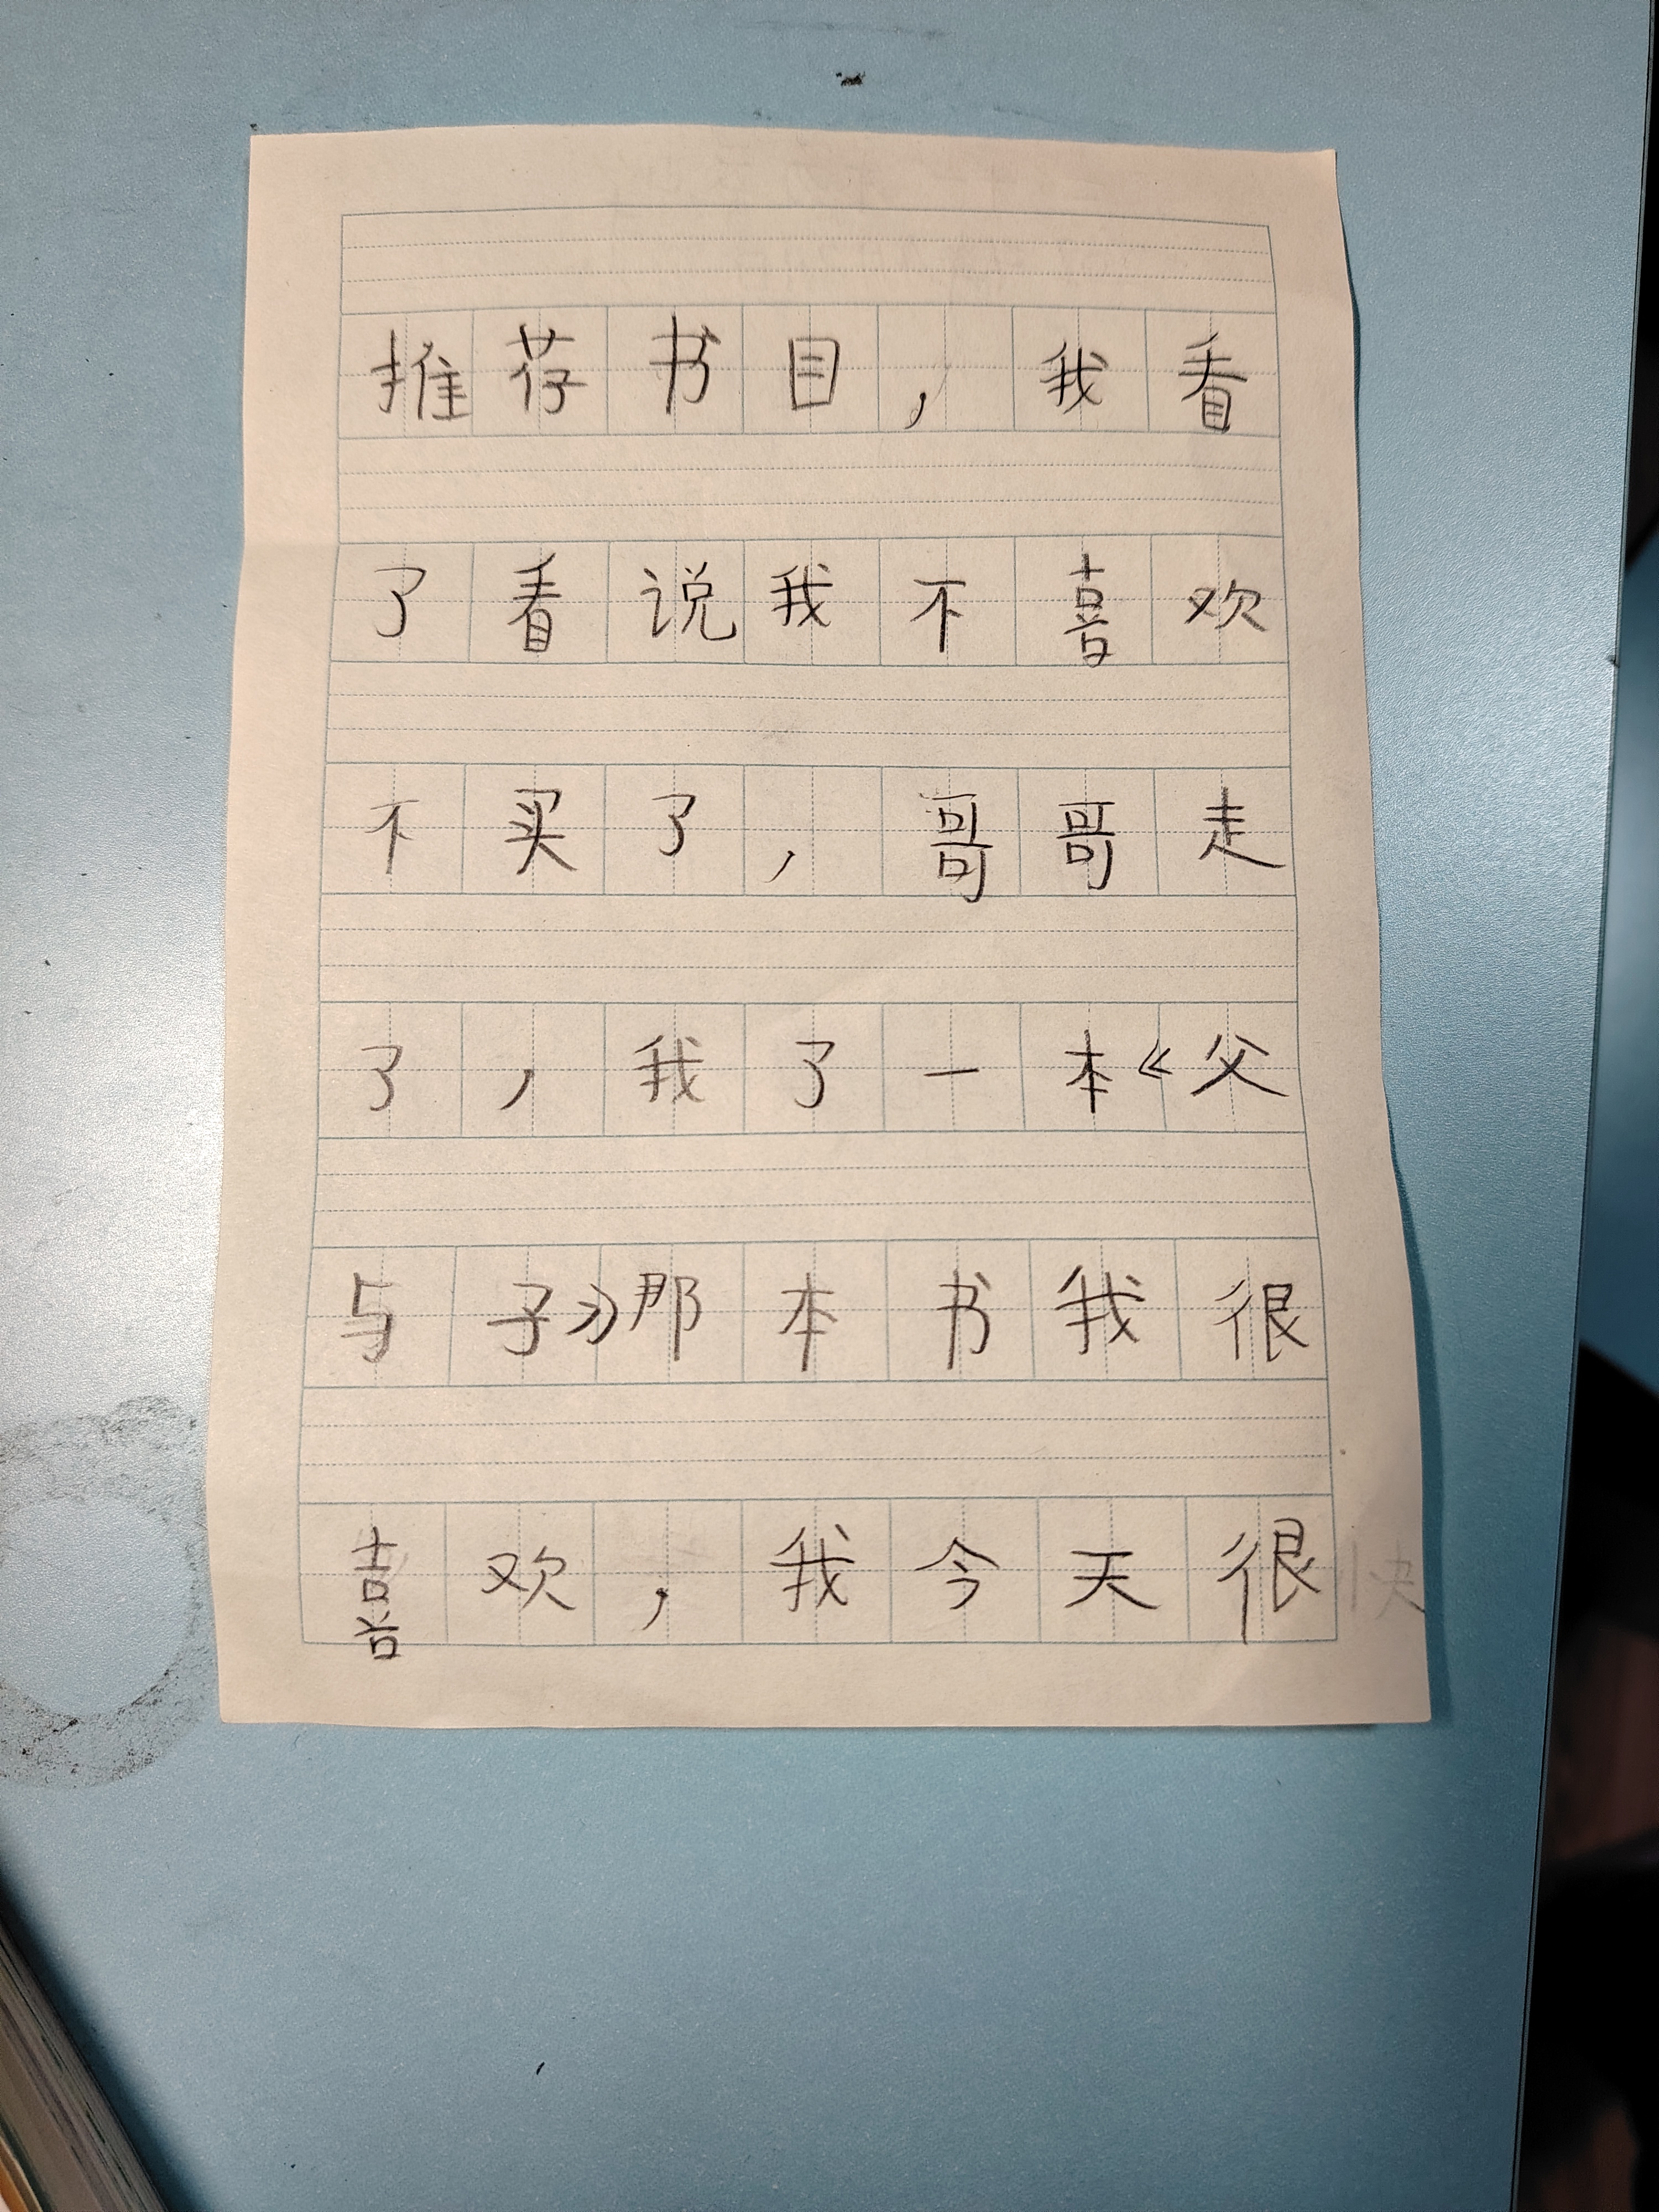 推荐书目，我看
了看说我不喜欢
不买了，哥哥走
了，我了一本《父
与子》那本书我很
喜欢，我今天很快